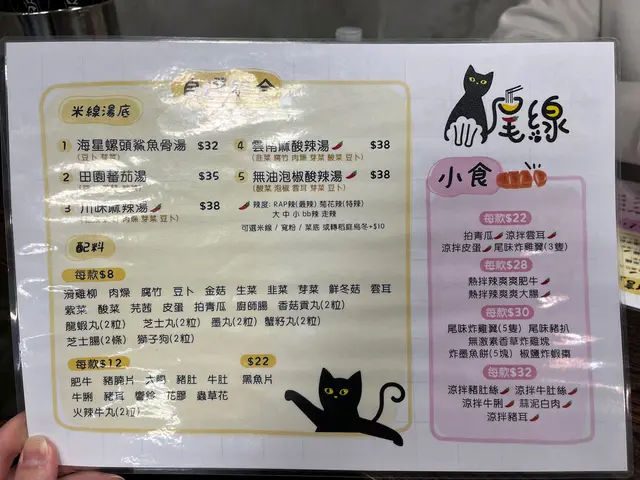 尾線
米線湯底
1 海星螺頭鯊魚骨湯 $32
(豆卜 芽菜)
2 田園番茄湯 $35
3 川味麻辣湯 $38
4 雲南麻酸辣湯 $38
(韭菜 腐竹 肉燥 芽菜 酸菜 豆卜)
5 無油泡椒酸辣湯 $38
(酸菜 泡椒 雲耳 芽菜 豆卜)
辣度: RAP辣(最辣) 菊花辣(特辣)
大 中 小 bb辣 走辣
可選米線 / 寬粉 / 菜底 或轉稻庭烏冬+$10
配料
每款$8
滑雞柳 肉燥 腐竹 豆卜 金菇 生菜 韭菜 芽菜 鮮冬菇 雲耳
紫菜 酸菜 芫茜 皮蛋 拍青瓜 廚師腸 香菇貢丸(2粒)
龍蝦丸(2粒) 芝士丸(2粒) 墨丸(2粒) 蟹籽丸(2粒)
芝士腸(2條) 獅子狗(2粒)
每款$12
肥牛 豬腩片 豬肚 牛肚
牛脷 豬耳 響鈴 花膠 蟲草花
火辣牛丸(2粒)
$22
黑魚片
小食
每款$22
拍青瓜 涼拌雲耳
涼拌皮蛋 尾味炸雞翼(3隻)
每款$28
熱拌辣爽爽肥牛
熱拌辣爽爽大腸
每款$30
尾味炸雞翼(5隻) 尾味豬扒
無激素香草炸雞塊
炸墨魚餅(5塊) 椒鹽炸蝦棗
每款$32
涼拌豬肚絲 涼拌牛肚絲
涼拌牛脷 蒜泥白肉
涼拌豬耳